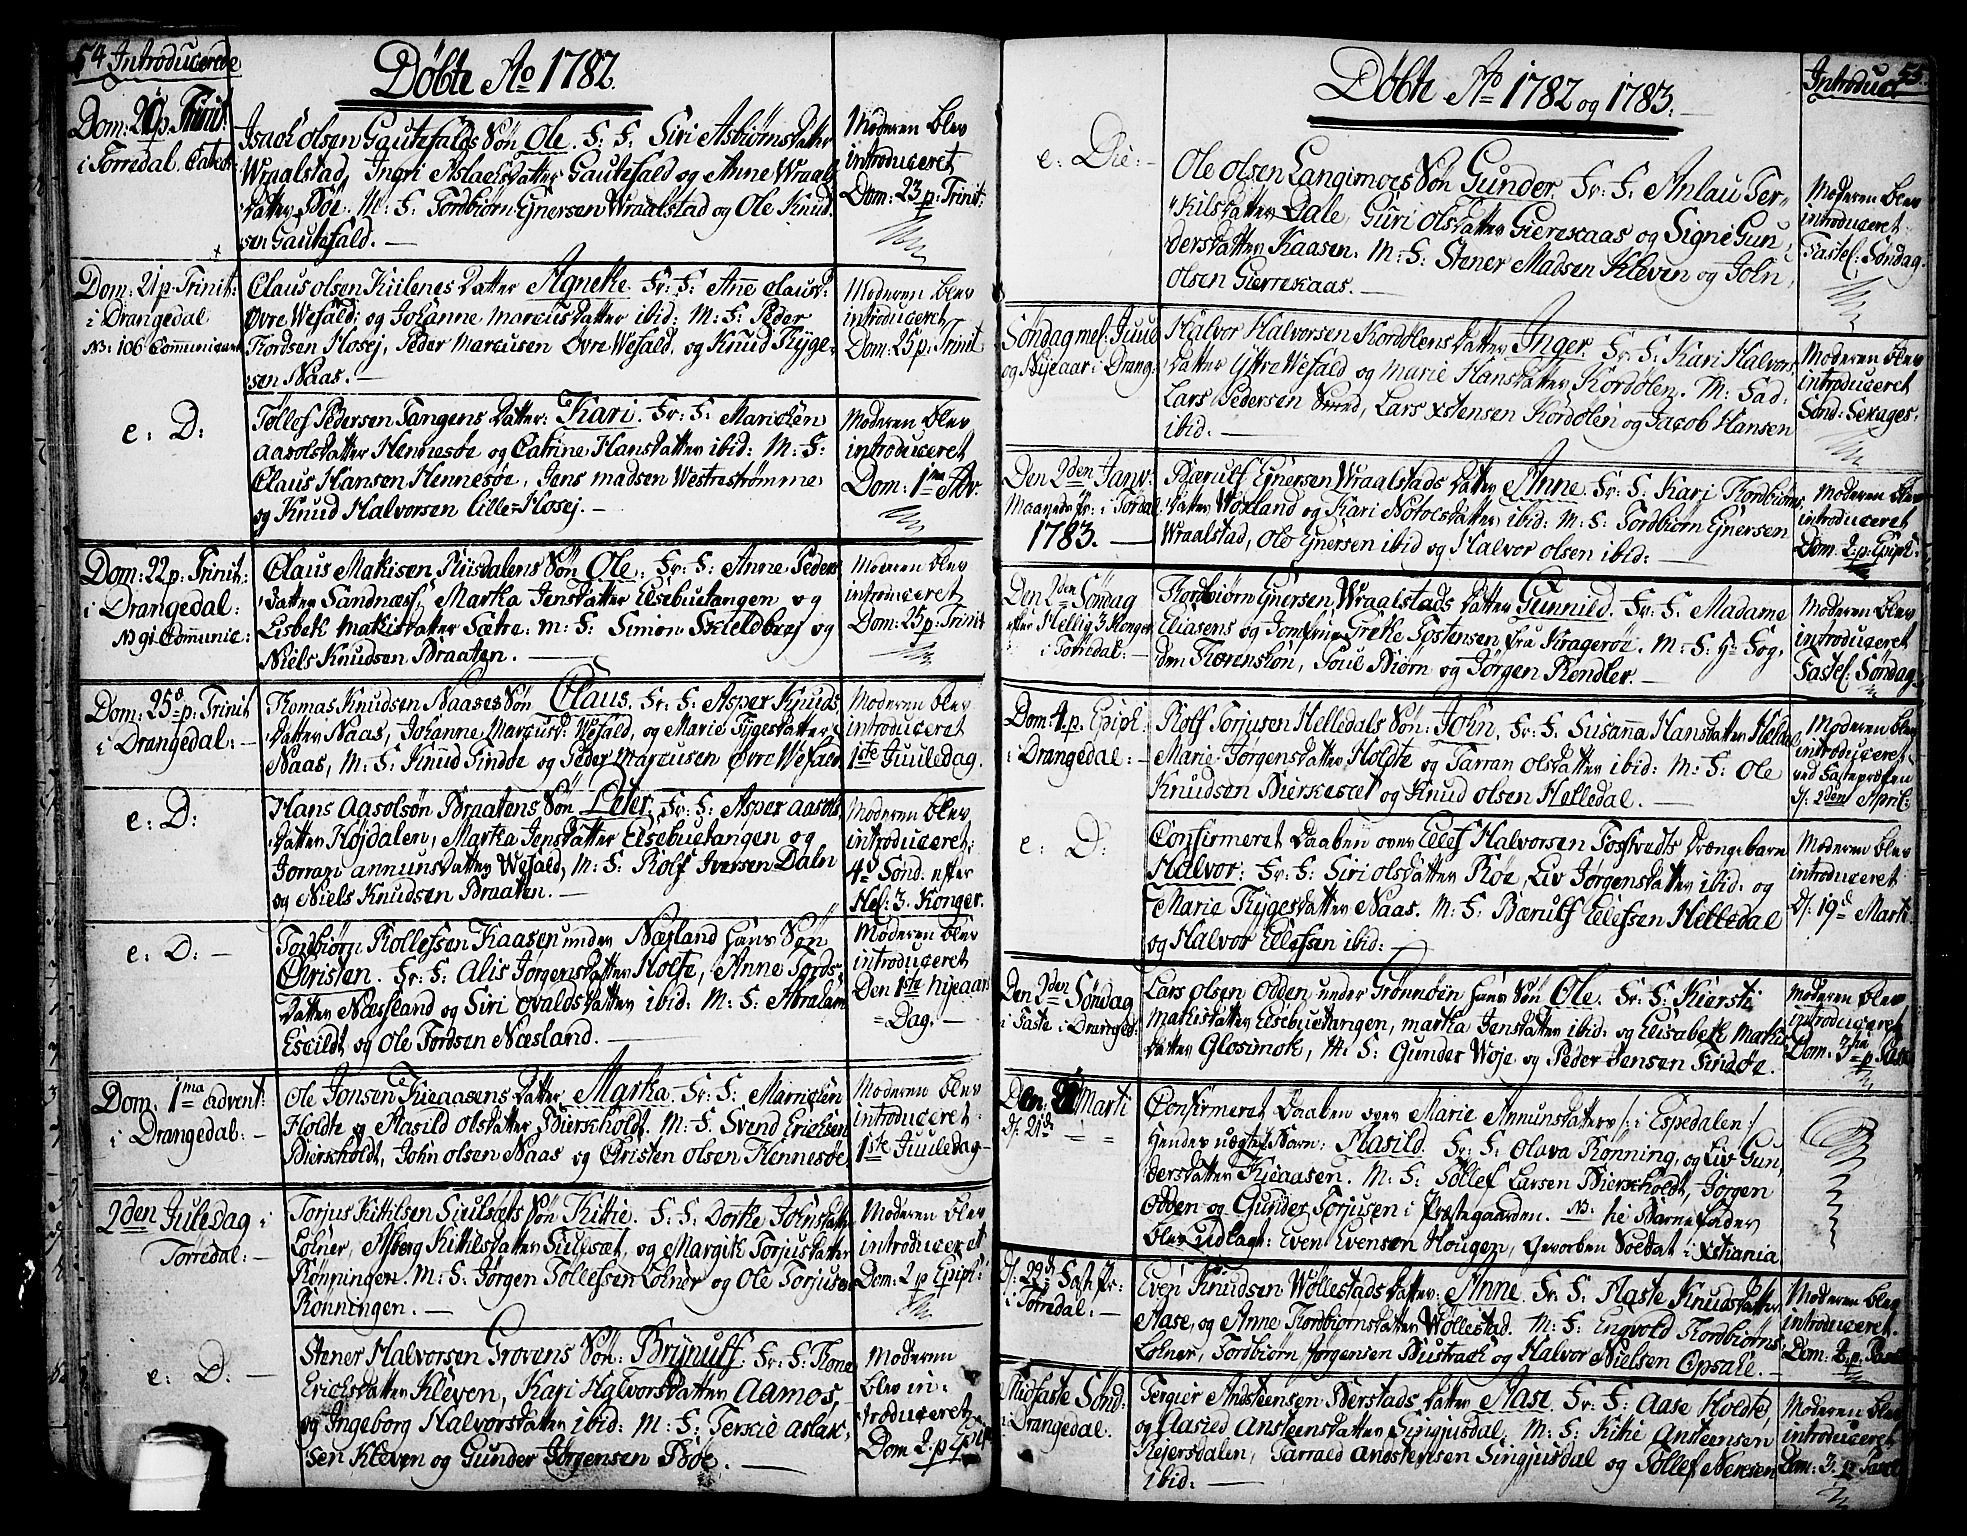 54 Introducerede
Døbte Ao 1782.
Dom: 20 p. Trinit:
i Torredal. Catech:
Isach Olsen Gautefalds Søn Ole. F: F: Siri Asbiørnsdatter
Wraalstad, Ingri Aslachsdatter Gautefald og Anne Wraals
datter Bøe. M: F: Tordbiørn Gjnersen Wraalstad og Ole Knud
sen Gautefald. —
Moderen blev
introduceret
Dom: 23 p: Trinit:
Dom: 21 p. Trinit:
i Drangedal
NB: 106 Communicant
Claus Olsen Kiilenes datter Agnethe. Fr: F: Anne Clausd:
Øvre Wefald: og Johanne Marcusdatter ibid: M: F: Peder
Thordsen Hosej, Peder Marcusen Øvre Wefald, og Knud Thyge-
sen Naas. —
Moderen blev
introduceret
Dom: 25 p: Trinit
e: D:
Tøllef Pedersen Tangens datter: Kari. Fr: F: Marichen
Aasolsdatter Hennesøe og Catrine Hansdatter ibid: M: F:
Claus Hansen Hennesøe, Jens Madsen Westrestrømme
og Knud Halvorsen Lille-Hosej. —
Moderen blev
introduceret
Dom: 1ma Adv.
Dom: 22 p: Trinit:
i Drangedal:
N 91 Communic:
Claus Mathisen Riisdalens Søn Ole. Fr: F: Anne Peders
datter Sandnæss, Martha Jensdatter Elsebuetangen og
Lisbeth Mathisdatter Sætre: M: F: Simon Skieldbrej og
Niels Knudsen Braaten. —
Moderen blev
introduceret
Dom: 25 p: Trinit
Dom: 25 p: Trinit
i Drangedal: —
Thomas Knudsen Naases Søn Claus. Fr: F: Asper Knuds
datter Naas, Johanne Marcusd: Wefald, og Marie Tygesdatter
Naas, M: F: Knud Sindøe og Peder Marcusen Øvre Wefald
Moderen blev
introduceret
1ste Juuledag.
e: D:
Hans Aasolsøn Braatens Søn Peter, Fr: F: Asper Aasols
datter Højdalen, Martha Jensdatter Elsebuetangen og
Jorran Annunsdatter Wefald, M: F: Rolf Iversen Daln
og Niels Knudsen Braaten. —
Moderen blev
introduceret:
4d Sønd: efter
Hel: 3. Konger.
e: D: —
Tordbiørn Rollefsen Kaasen under Næsland hans Søn
Christen. Fr: F: Alis Jørgensdatter Holte, Anne Tords-
datter Næsland og Siri Ovaldsdatter ibid: M: F: Abraham
Escildt og Ole Tordsen Næsland. —
Moderen blev
introduceret
Den 1ste Nyeaars
Dag. —
Dom. 1ma Advent:
i Drangedal: —
Ole Jonsen Kieaasens datter Martha. Fr: F: Marrichen
Holdte og Aasild Olsdatter Bierkholdt. M: F: Svend Erichsen
Bierkholdt, John Olsen Naas og Christen Olsen Hennesøe,
Moderen blev
introduceret:
1ste Juuledag —
2den Juledag i
Torredal: —
Torjus Kittilsen Siulsets Søn Kittil. F: F: Dorthe Johnsdatter
Lolner, Asberg Kittilsdatter Siulsæt, og Margith Torjusdatter
Rønningen. M: F: Jørgen Tollefsen Lolner og Ole Torjusen
Rønningen. —
Moderen blev
introduceret
Dom: 2 p Epiph:
e: D: —
Stener Halvorsen Grovens Søn: Brynulf. Fr: F: Tone
Erichsdatter Kleven, Kari Halvorsdatter Aamos,
og Ingeborg Halvorsdatter ibid: M: F: Terkie Aslak,
sen Kleven og Gunder Jørgensen Bøe. —
Moderen
blev in-
troduceret
Dom 2. p Epiph
55.
Døbte Ao 1782 og 1783. —
Introduct
e: Die: —
Ole Olsen Langmoes Søn Gunder. Fr: F: Anlau Ter-
kilsdatter Dale, Guri Olsdatter Gierrekaas og Signe Gun-
dersdatter Kaasen. M: F: Stener Madsen Kleven og John
Olsen Gierrekaas. —
Moderen blev
introduceret:
Fastel: Søndag.
Søndag mel: Juul
og Nyeaar i Drang:
Halvor Halvorsen Kordølens datter Inger. Fr: F: Kari Halvors
datter Yttre Wefald og Marie Hansdatter Kordølen. M: Fad:
Lars Pedersen Smed, Lars Xstensen Kordølen og Jacob Hansen
ibid: —
Moderen blev
introduceret
Sønd: Sexages:
Den 2den Janv:
Maaneds Pr: i Tordal
1783. —
Bærulf Gjnersen Wraalstads datter Anne. Fr: F: Kari Thordbiørns
datter Woxland og Kari Notolsdatter ibid: M: F: Tordbiørn Gjnersen
Wraalstad, Ole Gjnersen ibid og Halvor Olsen ibid: —
Moderen blev
introduceret
Dom: 2. p: Epiph:
Den 2den Søndag
efter Hellig 3 Konger
i Torredal: —
Thordbiørn Gjnersen Wraalstads datter Gunnild. Fr: F: Madame
Eliasens og Jomfrue Grethe Tostensen fra Kragerøe. M: F: Hr Fog,
den Thorenskøn, Poul Biørn og Jørgen Rendler. —
Moderen blev
introduceret
Fastel: Søndag
Dom 4. p. Epiph:
i Drangedal: —
Rolf Torjusen Helledals Søn: John, Fr: F: Susanna Hansdatter Heldal
Marie Jørgensdatter Holdte og Tarran Olsdatter ibid: M: F: Ole
Knudsen Bierkeset og Knud Olsen Helledal. —
Moderen blev
introduceret
ved Fasteprøken
d: 2den April:
e: D:
Confirmeret Daaben over Ellef Halvorsen Tostvedts Drængebarn
Halvor: Fr: F: Siri Olsdatter Røe, Liv Jørgensdatter ibid: og
Marie Thygesdatter Naas. M: F: Bærulf Ellefsen Helledal
og Halvor Ellefsen ibid: —
Moderen blev
introduceret
D: 19d Marti
Den 2den Søndag
i Faste i Dranged:
Lars Olsen Odden under Grønnøen hans Søn Ole. Fr: F: Kiersti
Mathisdatter Elsebuetangen, Martha Jensdatter ibid: og Elisabeth Mathis
datter Glosimoth, M: F: Gunder Woje og Peder Jensen Sindøe.
Moderen blev
introduceret
Dom: 3tia p. Pasc
Den Marti
D: 21de
Confirmeret Daaben over Marie Annunsdatters /: i Espedalen :/
hendes uægte Barn: Aasild. Fr: F: Olava Rønning, og Liv Gun-
dersdatter Kieaasen. M: F: Tollef Larsen Bierkholdt, Jørgen
Odden og Gunder Torjusen i Præstegaarden. NB: til Barnefader
blev udlagt: Even Evensen Hougen, Gevorben Soldat i Xstiania
D: 29d: Faste Pr:
i Torredal: —
Even Knudsen Wøllestads datter: Anne. Fr: F: Aaste Knudsdatter
Aase, og Anne Thordbiørnsdatter Wøllestad. M: F: Engvold Thordbiørns:
Lolner, Tordbiørn Jørgensen Bustrach og Halvor Nielsen Opsahl. —
Moderen blev
introduceret.
Dom: 2. p. Pasc
Midfaste Sønd:
i Drangedal.
Tergier Andsteensen Berstads datter Aase. Fr: F: Aase Holdte,
og Aasild Ansteensdatter Singiusdal; M: F: Kittil Ansteensen
Rejersdalen, Tarrald Anstensen Singjusdal og Tollef Nerisen
ibid: —
Moderen blev
introduceret
Dom: 3. p Pasc